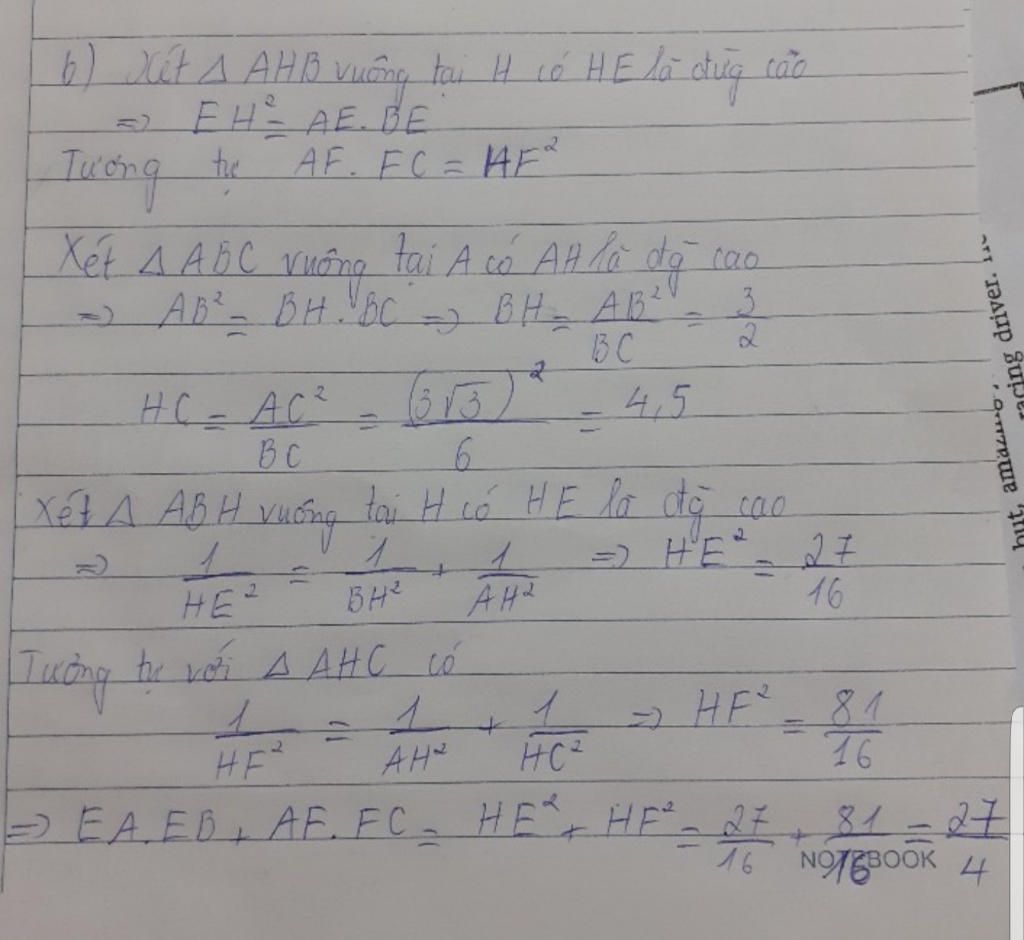 b) Xét Δ AHB vuông tại H có HE là đường cao
⇒ EH² = AE.BE
Tương tự AF. FC = HF²
Xét Δ ABC vuông tại A có AH là đg cao
⇒ AB² = BH.BC ⇒ BH = AB²/BC = 3/2
HC = AC²/BC = (3√3)²/6 = 4,5
Xét Δ ABH vuông tại H có HE là đg cao
⇒ 1/HE² = 1/BH² + 1/AH² ⇒ HE² = 27/16
Tương tự với Δ AHC có
1/HF² = 1/AH² + 1/HC² ⇒ HF² = 81/16
⇒ EA.EB + AF.FC = HE² + HF² = 27/16 + 81/16 = 27/4
NOTEBOOK
but, amazing
racing driver.